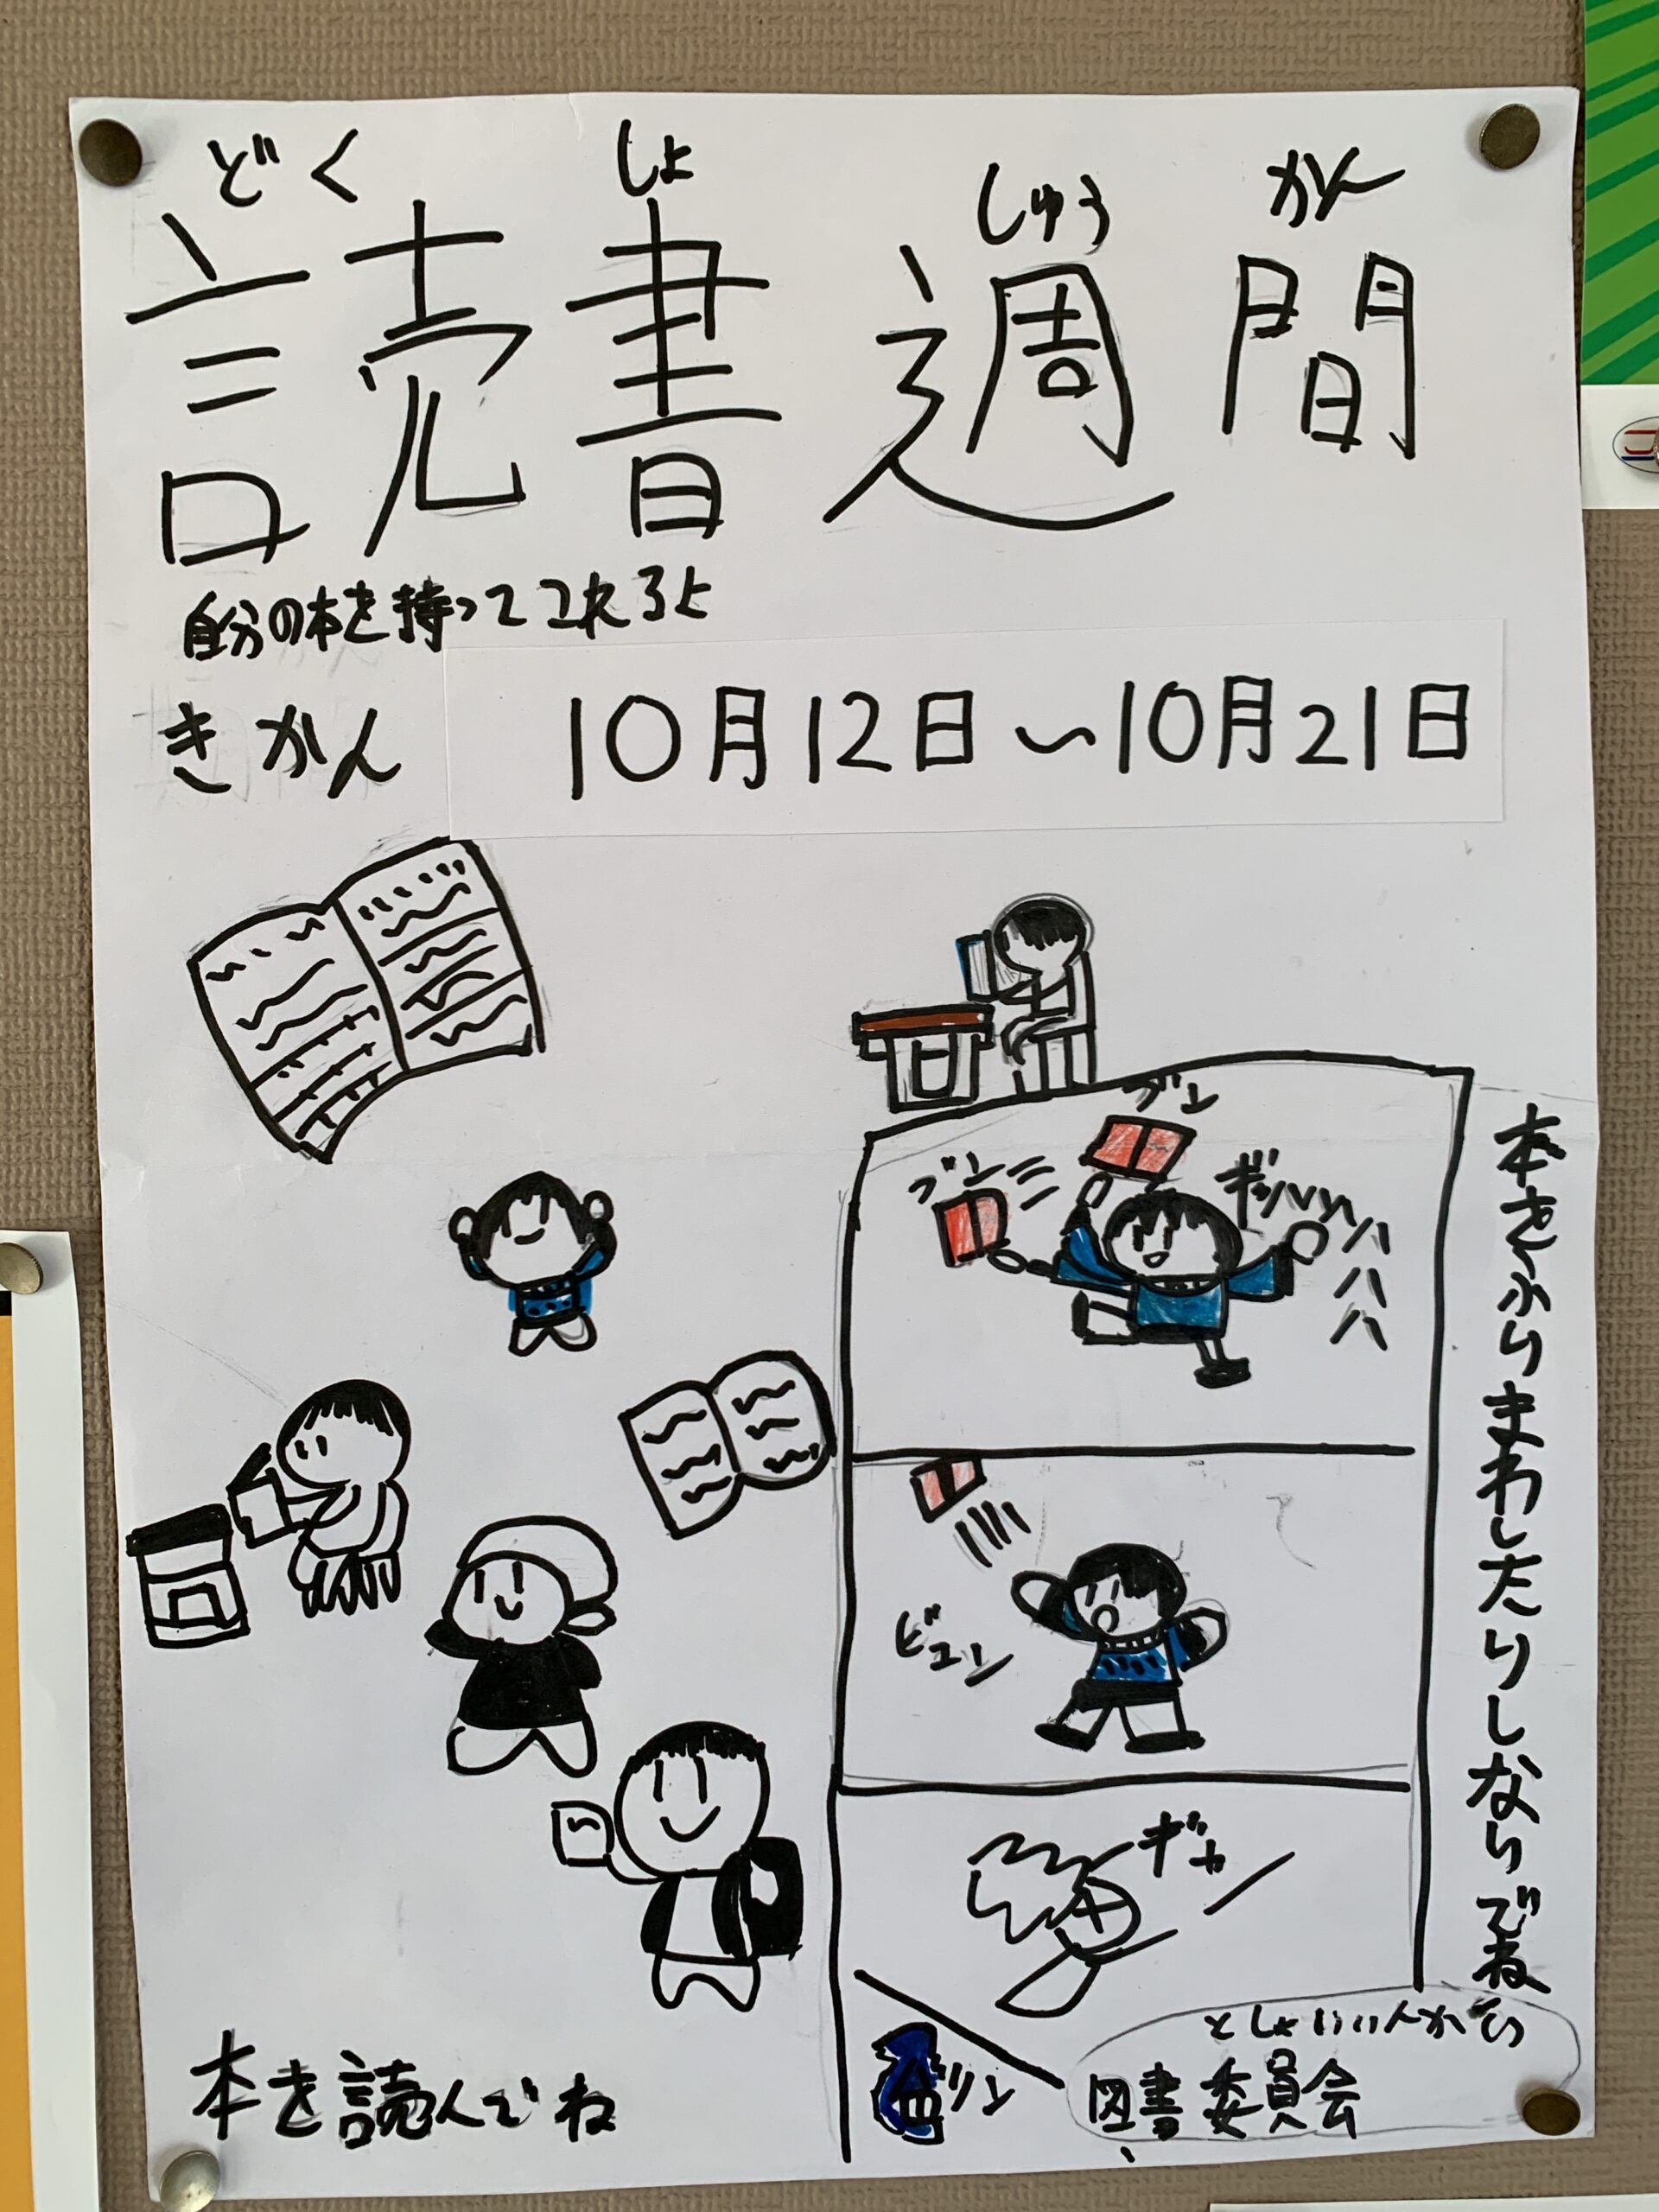 どくしょしゅうかん
読書週間
自分の本を持ってこれるよ
きかん 10月12日〜10月21日
ブン
ブン
ギャハハハハ
ビュン
ギャン
本をふりまわしたりしないでね
としょいいんかい
図書委員会
本を読んでね